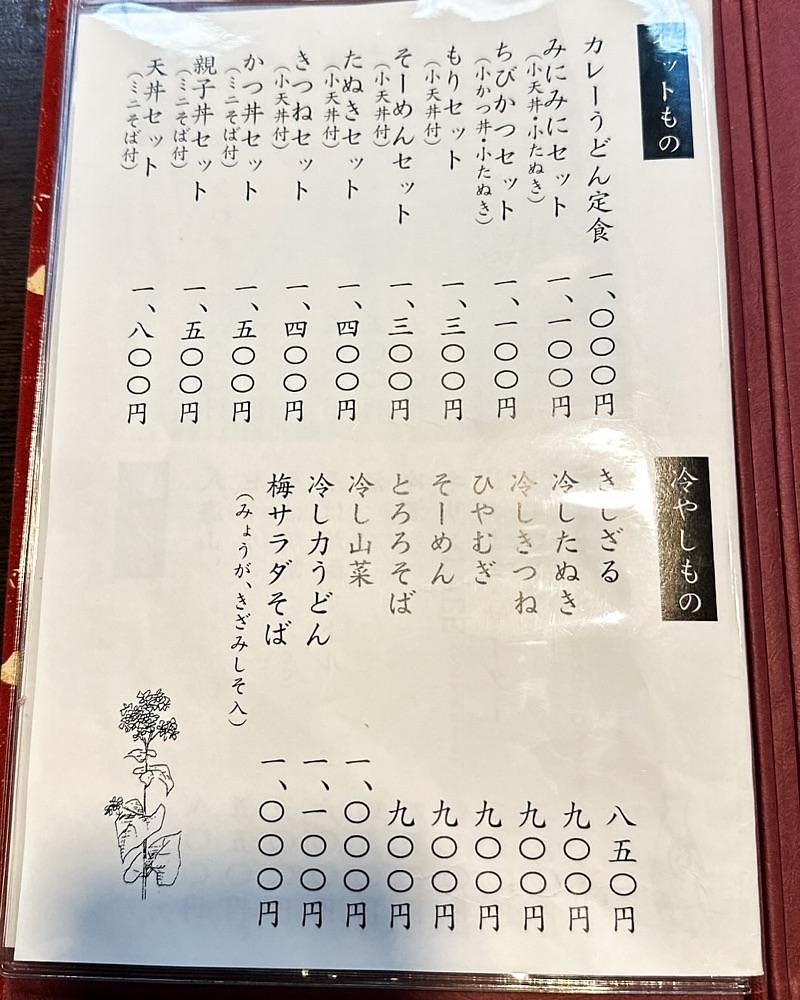 ットもの
カレーうどん定食 一、〇〇〇円
みにみにセット 一、一〇〇円
(小天丼・小たぬき)
ちびかつセット 一、一〇〇円
(小かつ丼・小たぬき)
もりセット 一、三〇〇円
(小天丼付)
そーめんセット 一、三〇〇円
(小天丼付)
たぬきセット 一、四〇〇円
(小天丼付)
きつねセット 一、四〇〇円
(小天丼付)
かつ丼セット 一、五〇〇円
(ミニそば付)
親子丼セット 一、五〇〇円
(ミニそば付)
天丼セット 一、八〇〇円
(ミニそば付)
冷やしもの
きしざる 八五〇円
冷したぬき 九〇〇円
冷しきつね 九〇〇円
ひやむぎ 九〇〇円
そーめん 九〇〇円
とろろそば 九〇〇円
冷し山菜 一、〇〇〇円
冷し力うどん 一、一〇〇円
梅サラダそば 一、〇〇〇円
(みょうが、きざみしそ入)